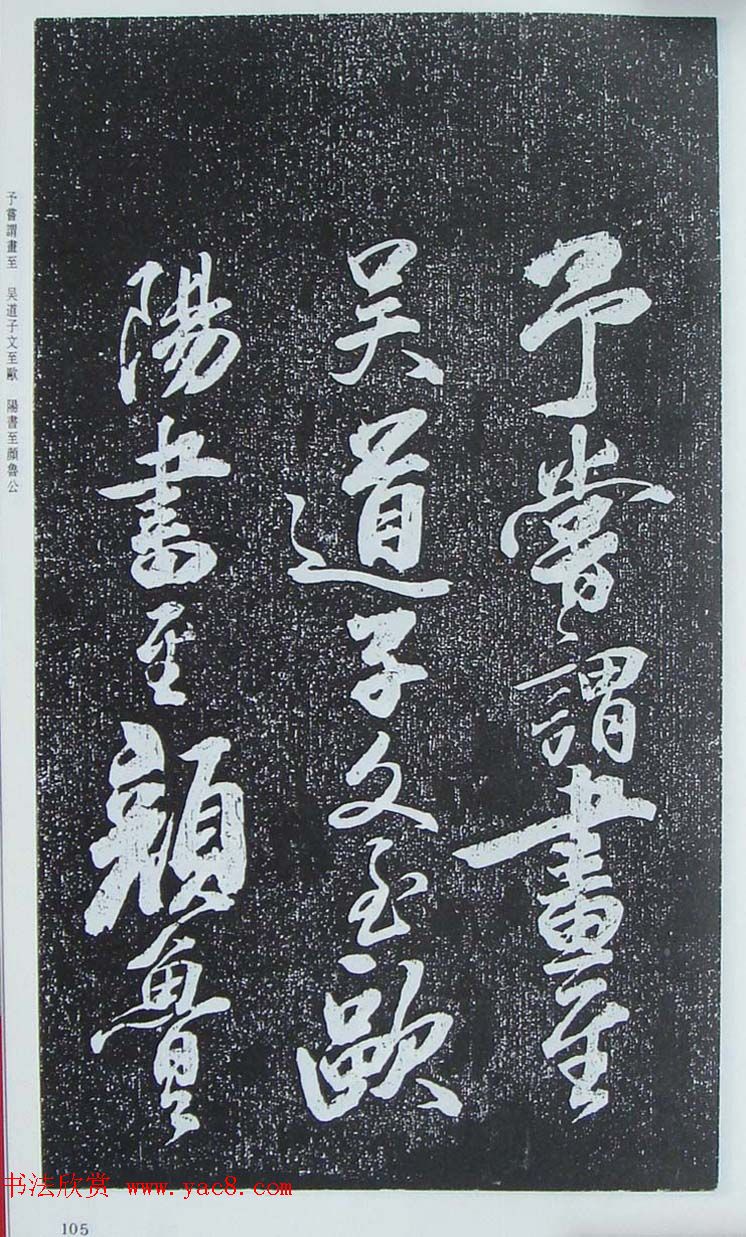 予嘗謂畫至
吳道子文至歐
陽書至顔魯
予嘗謂畫至 吳道子文至歐 陽書至顔魯公
书法欣赏 www.yac8.com
105